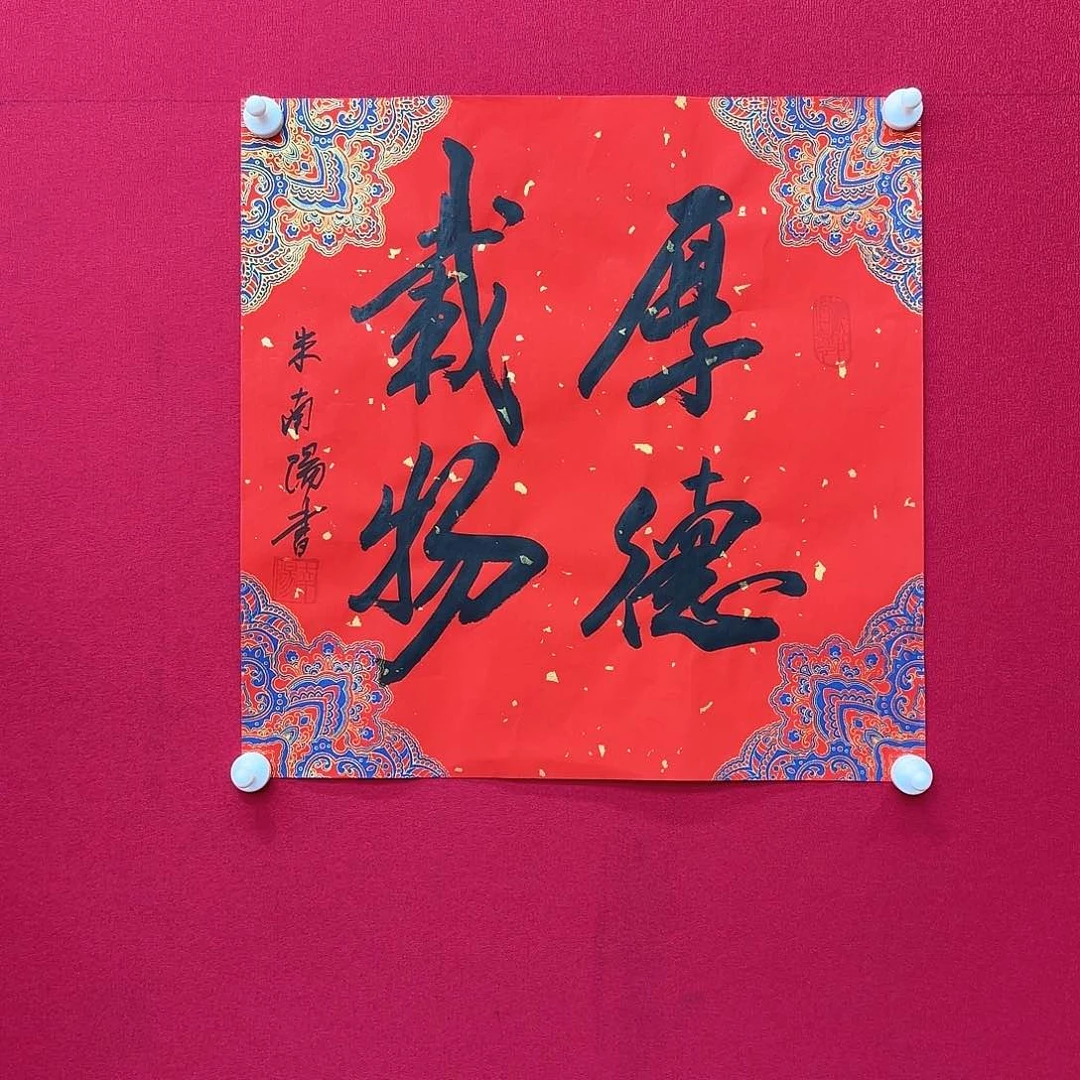 厚德
載物
朱南陽書